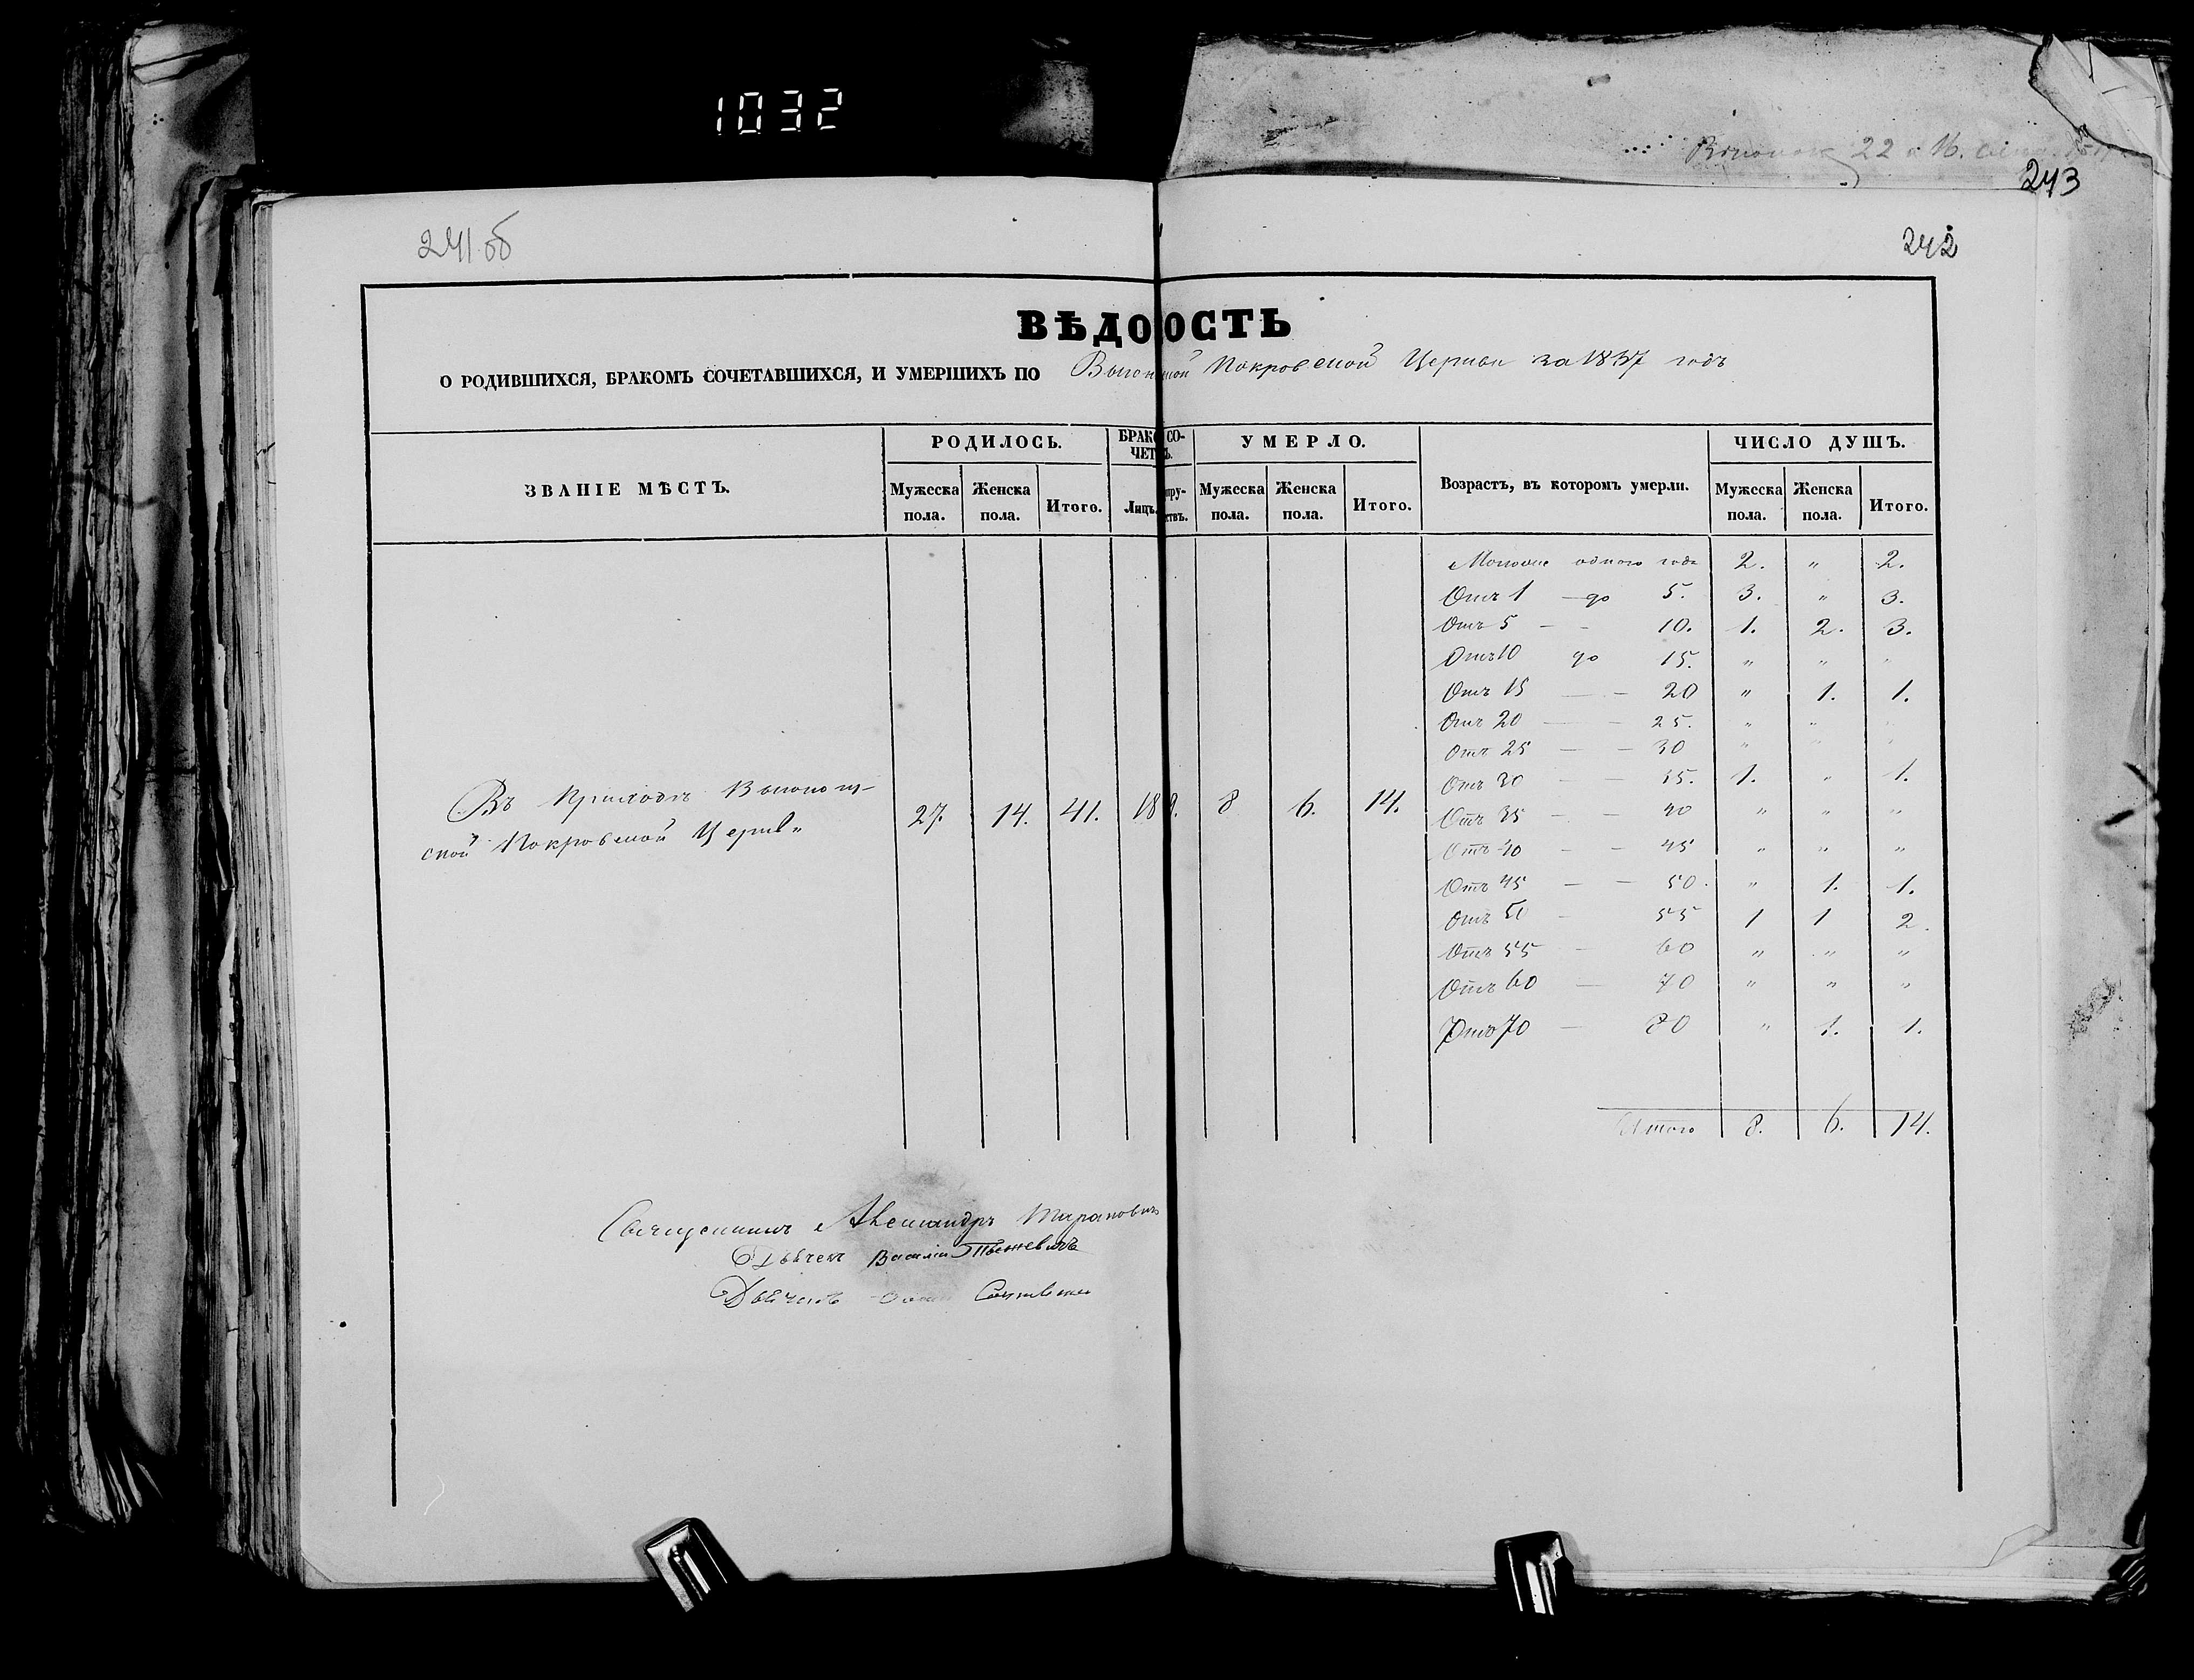 1032
22
243
241 об
242
ВѢДО ОСТЬ
О РОДИВШИХСЯ, БРАКОМЪ СОЧЕТАВШИХСЯ, И УМЕРШИХЪ ПО Покровской Церкви за 1857 годъ
ЗВАНІЕ МѢСТЪ. РОДИЛОСЬ. БРАК СО- УМЕРЛО. Возрастъ, въ которомъ умерли. ЧИСЛО ДУШЪ.
ЧЕТ Ъ.
Мужеска Женска Итого. Лицъ. пру- Мужеска Женска Итого. Мужеска Женска Итого.
пола. пола. ствъ. пола. пола. пола. пола.
Моложе одного года 2. " 2.
Отъ 1 — до 5. 3. " 3.
Отъ 5 — - 10. 1. 2. 3.
Отъ 10 до 15. " " "
Отъ 15 — - 20 " 1. 1.
Отъ 20 — - 25. " " "
Отъ 25 — - 30 " " "
Отъ 30 — — 35. 1. " 1.
Въ Приходѣ
ской Покровской Церкви 27. 14. 41. 18 8. 6. 14.
Отъ 35 — - 40 " " "
Отъ 40 — - 45 " " "
Отъ 45 — — 50. " 1. 1.
Отъ 50 — 55 1 1 2.
Отъ 55 — 60 " " "
Отъ 60 — 70 " " "
Отъ 70 — 80 " 1. 1.
Итого 8. 6. 14.
Священникъ Александръ Тарановичъ
Дьячекъ Василій
Дьячекъ